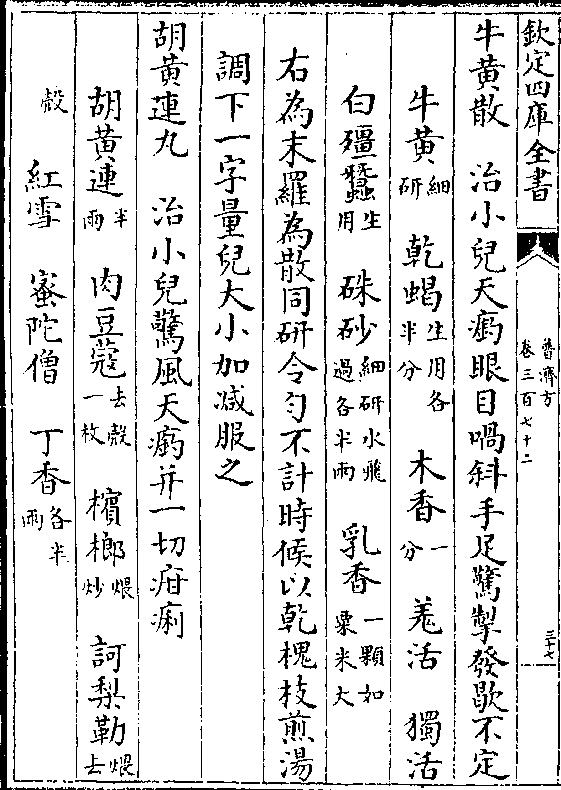 欽定四庫全書
普濟方
卷三百七十二
三十七
牛黄散 治小兒天瘹眼目喎斜手足驚掣發歇不定
牛黄細研 乾蝎生用各半分 木香一分 羗活 獨活
白殭蠶生用 硃砂細研水飛過各半兩 乳香一顆如粟米大
右為末羅為散同研令勻不計時候以乾槐枝煎湯
調下一字量兒大小加减服之
胡黄連丸 治小兒驚風天瘹并一切疳痢
胡黄連半兩 肉豆蔻去殼一枚 檳榔煨炒 訶梨勒煨去
殼 紅雪 蜜陀僧 丁香各半兩